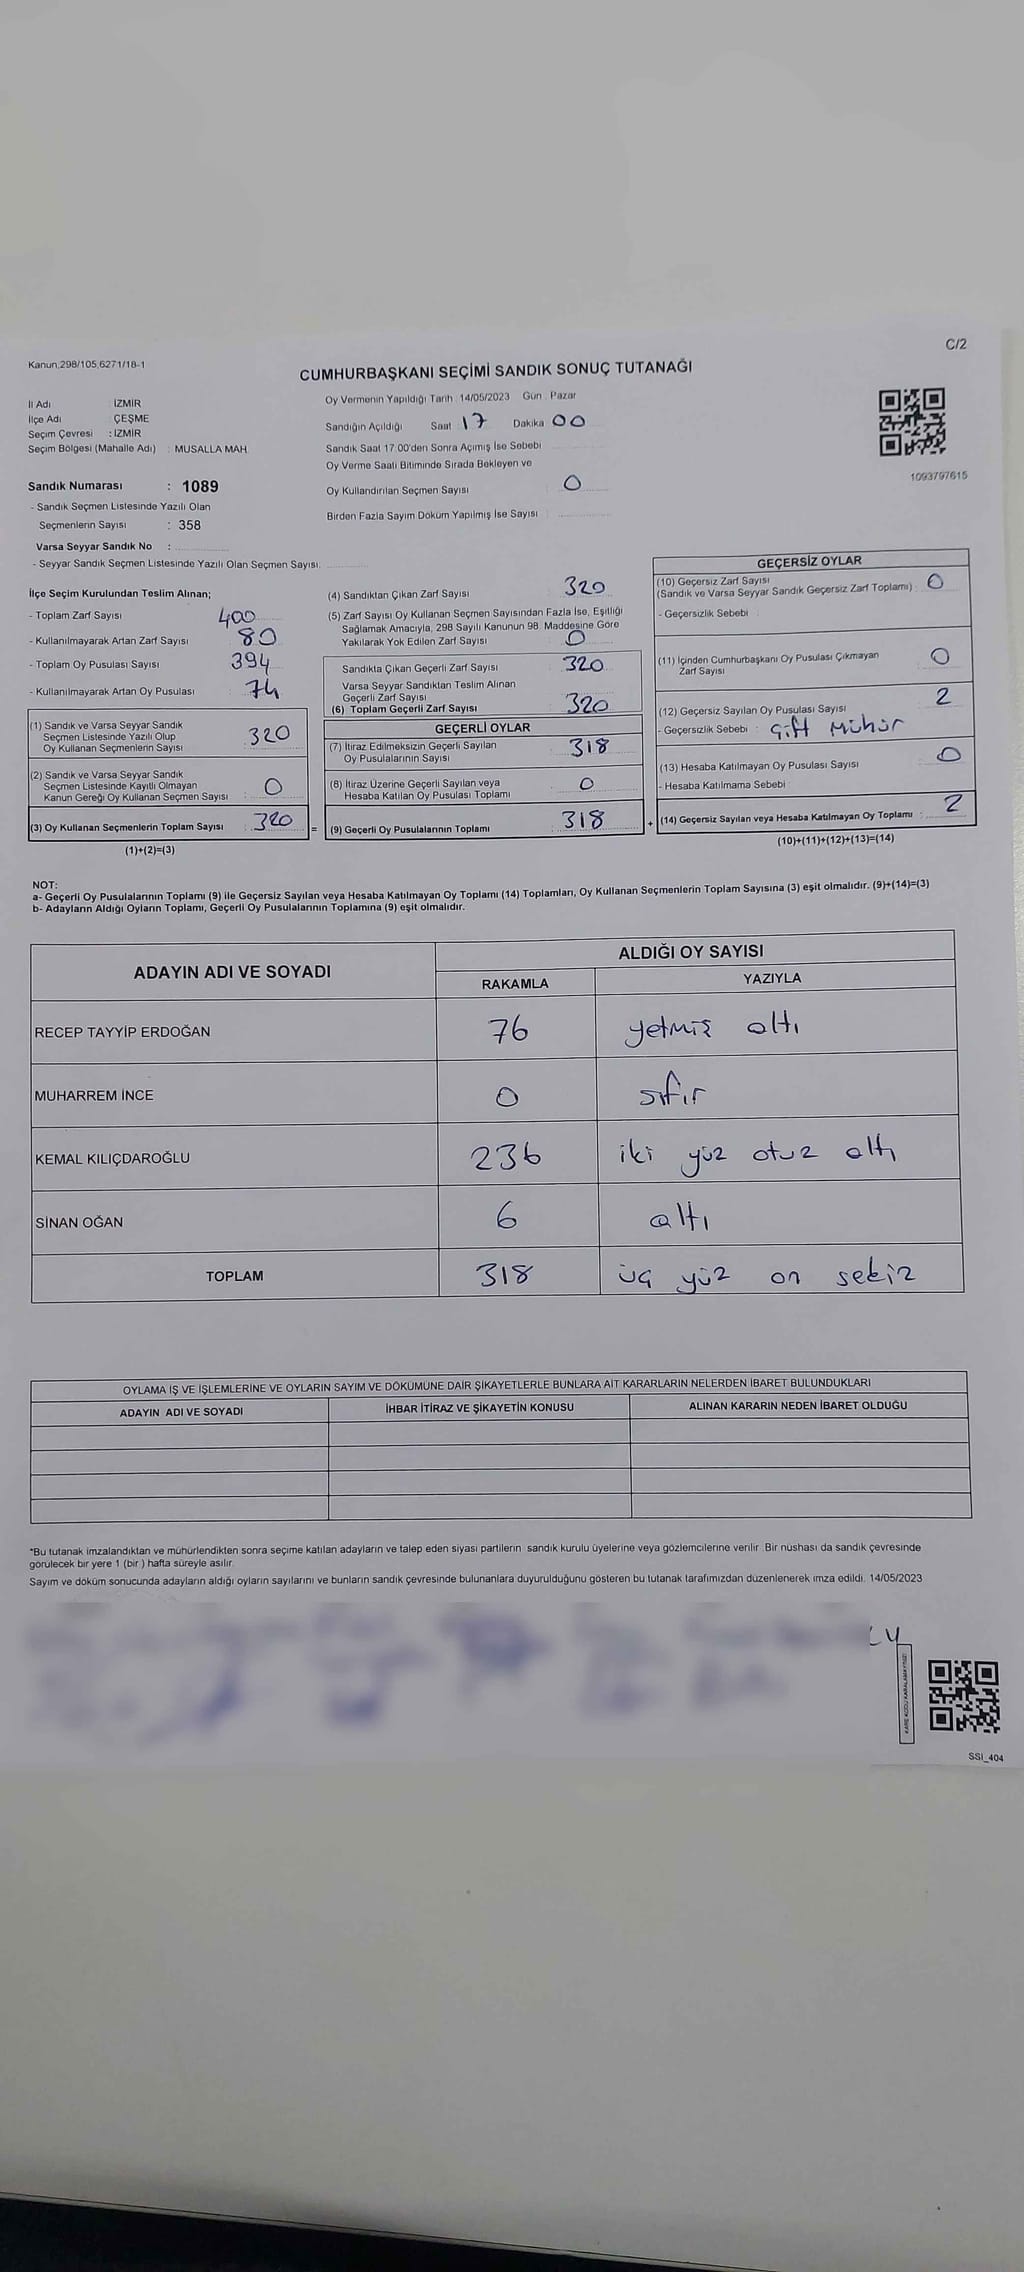 C/2
Kanun,298/105,6271/18-1
CUMHURBAŞKANI SEÇİMİ SANDIK SONUÇ TUTANAĞI
İl Adı : İZMİR
İlçe Adı : ÇEŞME
Seçim Çevresi : İZMİR
Seçim Bölgesi (Mahalle Adı) : MUSALLA MAH.
Oy Vermenin Yapıldığı Tarih : 14/05/2023 Gün : Pazar
Sandığın Açıldığı Saat 17 Dakika 00
Sandık Saat 17.00'den Sonra Açımış İse Sebebi
Oy Verme Saati Bitiminde Sırada Bekleyen ve
Oy Kullandırılan Seçmen Sayısı : 0
Birden Fazla Sayım Döküm Yapılmış İse Sayısı
1093797615
Sandık Numarası : 1089
- Sandık Seçmen Listesinde Yazılı Olan
Seçmenlerin Sayısı : 358
Varsa Seyyar Sandık No :
- Seyyar Sandık Seçmen Listesinde Yazılı Olan Seçmen Sayısı:
İlçe Seçim Kurulundan Teslim Alınan;
- Toplam Zarf Sayısı : 400
- Kullanılmayarak Artan Zarf Sayısı : 80
- Toplam Oy Pusulası Sayısı : 394
- Kullanılmayarak Artan Oy Pusulası : 74
(1) Sandık ve Varsa Seyyar Sandık
Seçmen Listesinde Yazılı Olup
Oy Kullanan Seçmenlerin Sayısı : 320
(2) Sandık ve Varsa Seyyar Sandık
Seçmen Listesinde Kayıtlı Olmayan
Kanun Gereği Oy Kullanan Seçmen Sayısı : 0
(3) Oy Kullanan Seçmenlerin Toplam Sayısı : 320
(1)+(2)=(3)
(4) Sandıktan Çıkan Zarf Sayısı : 320
(5) Zarf Sayısı Oy Kullanan Seçmen Sayısından Fazla İse, Eşitliği
Sağlamak Amacıyla, 298 Sayılı Kanunun 98. Maddesine Göre
Yakılarak Yok Edilen Zarf Sayısı : 0
Sandıkta Çıkan Geçerli Zarf Sayısı : 320
Varsa Seyyar Sandıktan Teslim Alınan
Geçerli Zarf Sayısı
(6) Toplam Geçerli Zarf Sayısı : 320
GEÇERLİ OYLAR
(7) İtiraz Edilmeksizin Geçerli Sayılan
Oy Pusulalarının Sayısı : 318
(8) İtiraz Üzerine Geçerli Sayılan veya
Hesaba Katılan Oy Pusulası Toplamı : 0
= (9) Geçerli Oy Pusulalarının Toplamı : 318
GEÇERSİZ OYLAR
(10) Geçersiz Zarf Sayısı
(Sandık ve Varsa Seyyar Sandık Geçersiz Zarf Toplamı) : 0
- Geçersizlik Sebebi :
(11) İçinden Cumhurbaşkanı Oy Pusulası Çıkmayan
Zarf Sayısı : 0
(12) Geçersiz Sayılan Oy Pusulası Sayısı : 2
- Geçersizlik Sebebi : Çift Mühür
(13) Hesaba Katılmayan Oy Pusulası Sayısı : 0
- Hesaba Katılmama Sebebi :
+ (14) Geçersiz Sayılan veya Hesaba Katılmayan Oy Toplamı : 2
(10)+(11)+(12)+(13)=(14)
NOT:
a- Geçerli Oy Pusulalarının Toplamı (9) ile Geçersiz Sayılan veya Hesaba Katılmayan Oy Toplamı (14) Toplamları, Oy Kullanan Seçmenlerin Toplam Sayısına (3) eşit olmalıdır. (9)+(14)=(3)
b- Adayların Aldığı Oyların Toplamı, Geçerli Oy Pusulalarının Toplamına (9) eşit olmalıdır.
ADAYIN ADI VE SOYADI ALDIĞI OY SAYISI
RAKAMLA YAZIYLA
RECEP TAYYİP ERDOĞAN 76 yetmiş altı
MUHARREM İNCE 0 sıfır
KEMAL KILIÇDAROĞLU 236 iki yüz otuz altı
SİNAN OĞAN 6 altı
TOPLAM 318 üç yüz on sekiz
OYLAMA İŞ VE İŞLEMLERİNE VE OYLARIN SAYIM VE DÖKÜMÜNE DAİR ŞİKAYETLERLE BUNLARA AİT KARARLARIN NELERDEN İBARET BULUNDUKLARI
ADAYIN ADI VE SOYADI İHBAR İTİRAZ VE ŞİKAYETİN KONUSU ALINAN KARARIN NEDEN İBARET OLDUĞU
*Bu tutanak imzalandıktan ve mühürlendikten sonra seçime katılan adayların ve talep eden siyasi partilerin sandık kurulu üyelerine veya gözlemcilerine verilir. Bir nüshası da sandık çevresinde
görülecek bir yere 1 (bir ) hafta süreyle asılır.
Sayım ve döküm sonucunda adayların aldığı oyların sayılarını ve bunların sandık çevresinde bulunanlara duyurulduğunu gösteren bu tutanak tarafımızdan düzenlenerek imza edildi. 14/05/2023
KARE KODU KARALAMAYINIZ!
SSİ_404